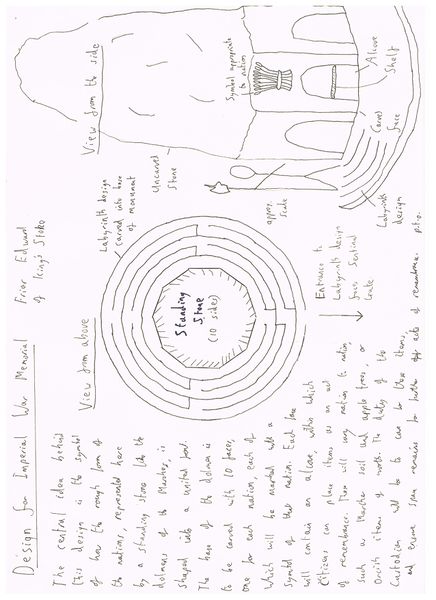 Design for Imperial War Memorial
Prior Edward
of King's Stoke
The central idea behind
this design is the symbol
of how the rough form of
the nations, represented here
by a standing stone like the
dolmens of the Marches, is
shaped into a united
The base of the dolmen is
to be carved with 10 faces,
one for each nation, each of
which will be marked with a
symbol of that nation. Each face
will contain an alcove, within which
citizens can place items as an act
of remembrance. These will vary nation to nation,
such as Marcher soil and apple trees, or
Orcish items of worth. The duty of the
Custodian will be to these items,
and ensure space remains for further acts of remembrance.
p.t.o.
View from above
Labyrinth design
carved into base
of monument
Standing
Stone
(10 sides)
Entrance to
Labyrinth design
faces Sentinel
Gate
View from the side
Uncarved
Stone
approx.
scale
Symbol appropriate
to nation
Alcove
Shelf
Carved
face
Labyrinth
design